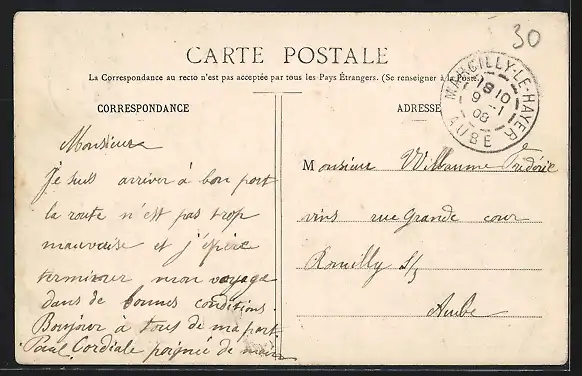 30
CARTE POSTALE
La Correspondance au recto n'est pas acceptée par tous les Pays Étrangers. (Se renseigner à la Poste.)
CORRESPONDANCE
ADRESSE
MARCILLY-LE-HAYER
18 10
9 - 1
08
AUBE
Monsieur
Je suis arriver à bon port
la route n'est pas trop
mauvaise et j'éspère
terminer mon voyage
dans de bonnes conditions.
Bonjour à tous de ma part.
Paul. Cordiale poignée de main
Monsieur Willaume Frédéric
vins rue Grande cour
Romilly S/s
Aube